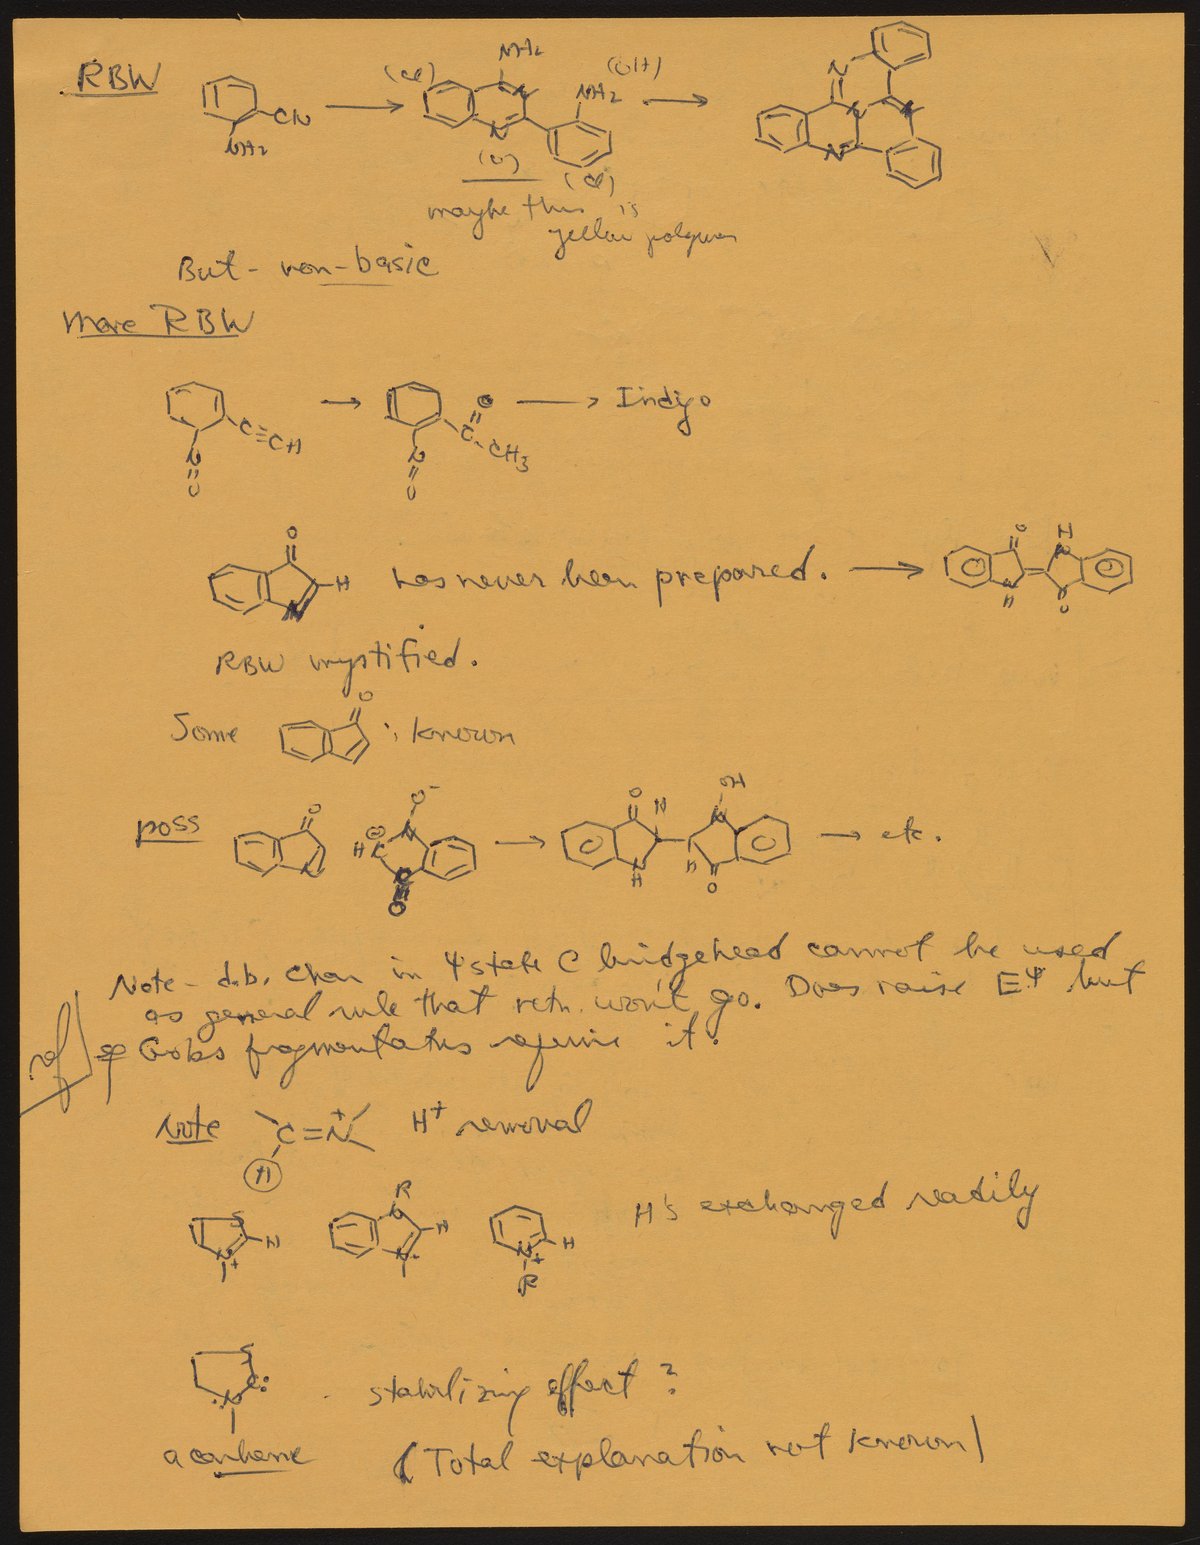 RBW
NH2
(Cl)
(OH)
NH2
CN
NH2
N
N
N
N
N
N
(O)
(Cl)
maybe this is
yellow polymer
But - non-basic
More RBW
C≡CH
N
O
O
C
CH3
N
O
Indigo
O
H
N
has never been prepared.
O
H
N
N
H
O
RBW mystified.
Some
O
; known
poss
O
N
O-
N
H C
O
O
H
N
H
OH
N
H
O
etc.
Note - d.b. char in Ψ state C bridgehead cannot be used
as general rule that retn. won't go. Does raise EΨ but
ref
Grobs fragmentations require it.
Note
C=N+
H
H+ removal
S
H
N
+
R
N
H
N
+
H
N
+
R
H's exchanged readily
S
C:
:N
stabilizing effect?
a carbene
(Total explanation not known)